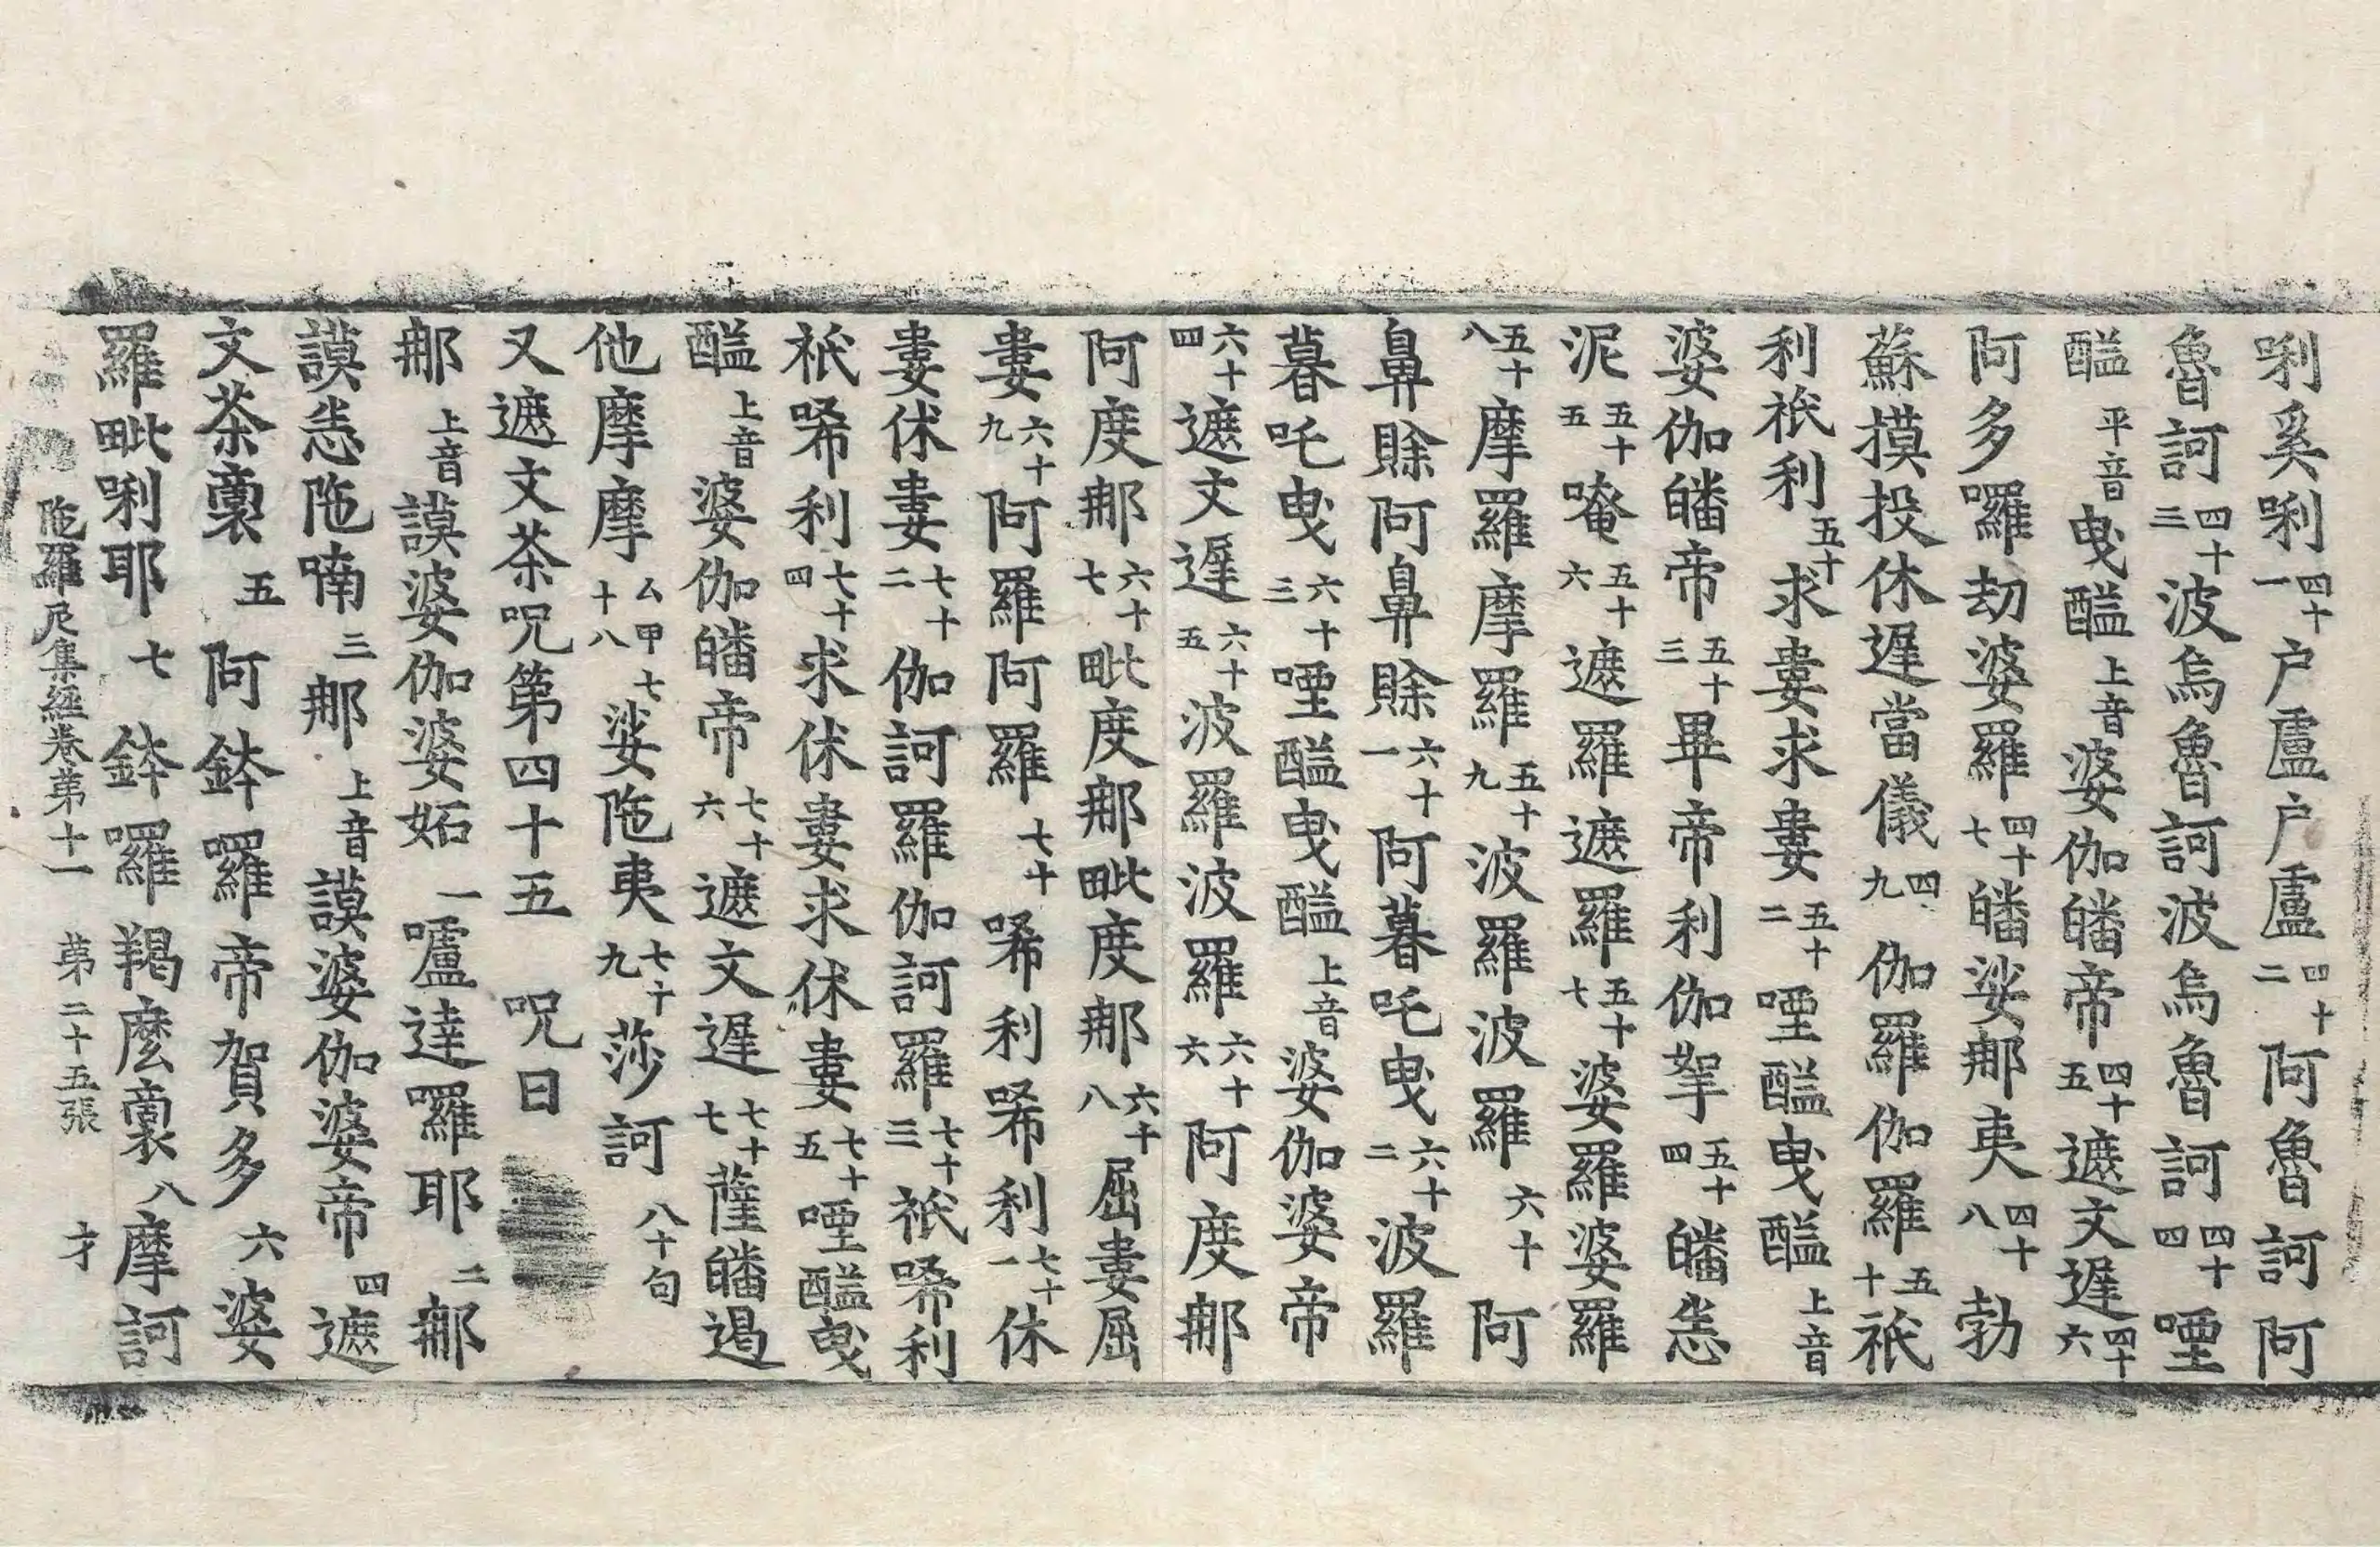 唎奚唎四十一户盧户盧四十二阿魯訶阿
魯訶四十三波烏魯訶波烏魯訶四十四㗌
醯平音曳醯上音婆伽皤帝四十五遮文遲四十六
阿多囉劫婆羅四十七皤娑那夷四十八勃
蘇摸投休遲當儀四九伽羅伽羅五十祇
利祇利五十求婁求婁五十二㗌醯曳醯上音
婆伽皤帝五十三畢帝利伽拏五十四皤恙
泥五十五唵五十六遮羅遮羅五十七婆羅婆羅
五十八摩羅摩羅五十九波羅波羅六十阿
鼻賒阿鼻賒六十一阿暮吒曳六十二波羅
暮吒曳六十三㗌醯曳醯上音婆伽婆帝
六十四遮文遲六十五波羅波羅六十六阿度那
阿度那六十七毗度那毗度那六十八屈婁屈
婁六十九阿羅阿羅七十唏利唏利七十一休
婁休婁七十二伽訶羅伽訶羅七十三祇唏利
祇唏利七十四求休婁求休婁七十五㗌醯曳
醯上音婆伽皤帝七十六遮文遲七十七薩皤遏
他摩摩厶甲七十八娑陁夷七十九莎訶八十句
又遮文茶呪第四十五 呪曰
那上音謨婆伽婆妬一嚧達囉耶二那
謨恙陁喃三那上音謨婆伽婆帝四遮
文茶裏五阿鉢羅帝賀多六婆
羅毗唎耶七鉢囉羯麽裏八摩訶
陁羅尼集經卷苐十一 苐二十五張 才